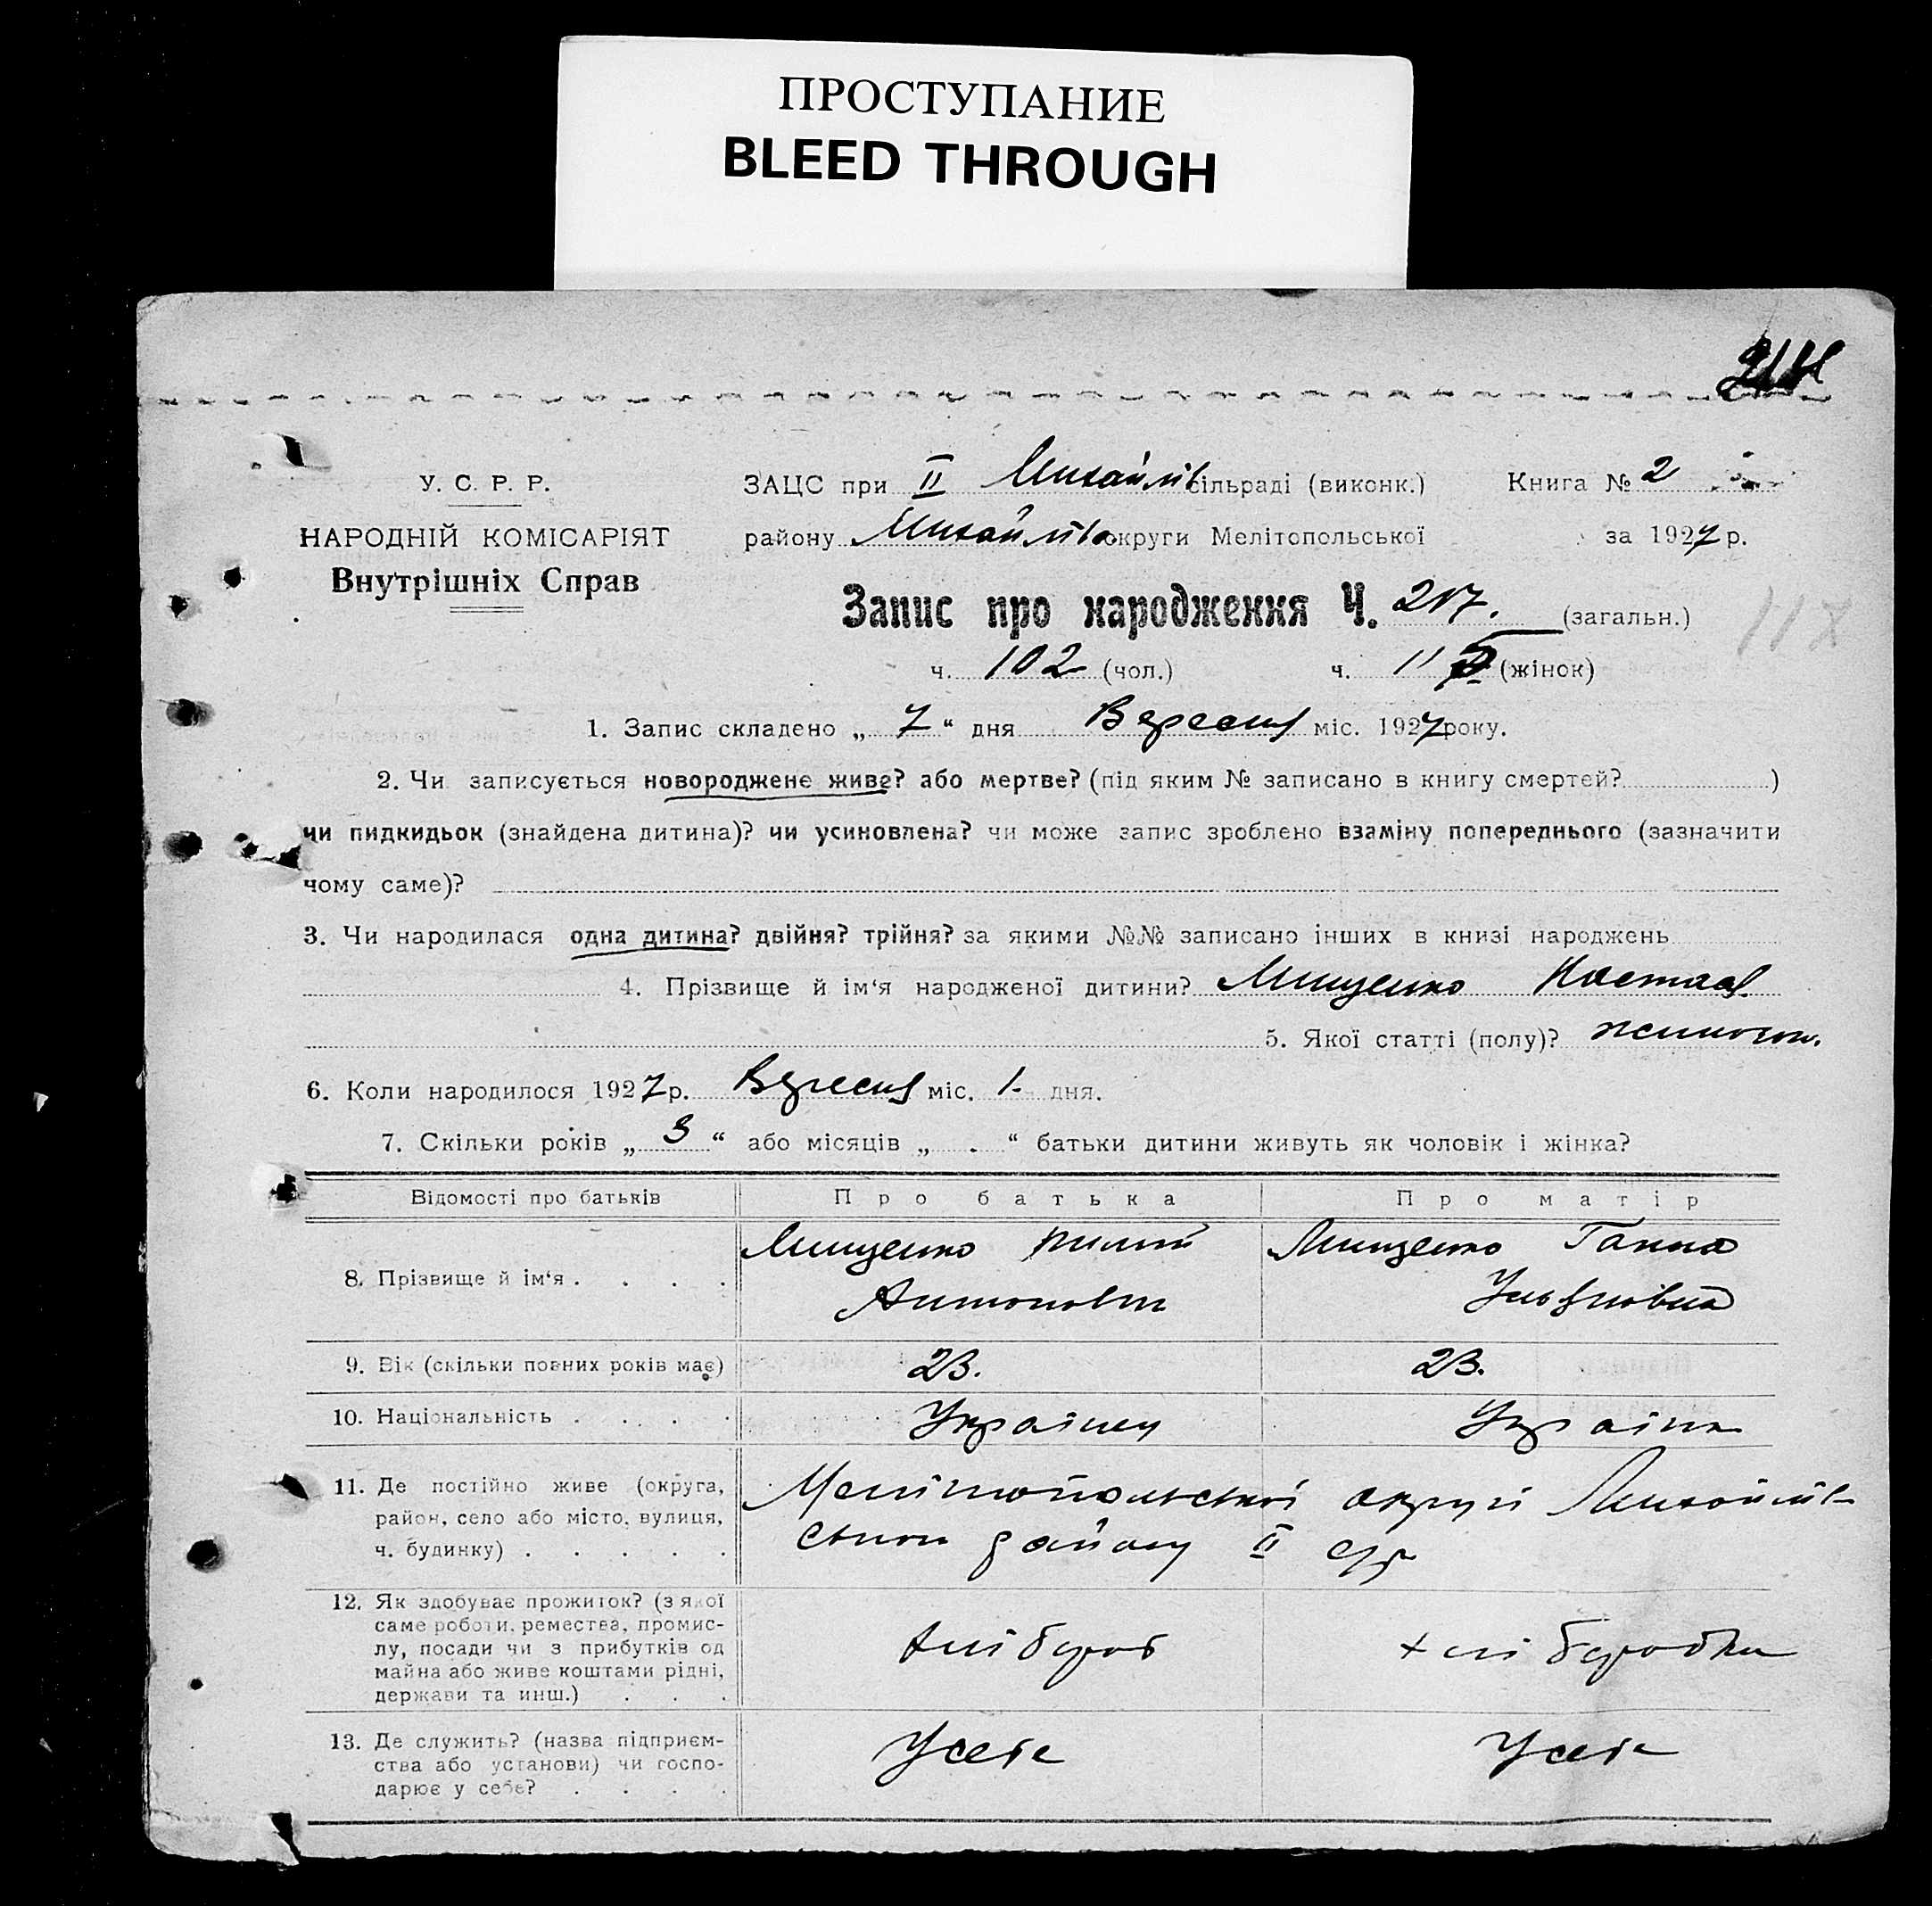 ПРОСТУПАНИЕ
BLEED THROUGH
У. С. Р. Р.
НАРОДНІЙ КОМІСАРІЯТ
Внутрішніх Справ
ЗАЦС при II Михайлів сільраді (виконк.) Книга № 2
району Михайлів округи Мелітопольської за 1927 р.
Запис про народження Ч. 217. (загальн.)
ч. 102 (чол.) ч. 115 (жінок)
1. Запис складено „ 7 “ дня Вересня міс. 1927 року.
2. Чи записується новороджене живе? або мертве? (під яким № записано в книгу смертей? )
чи пидкидьок (знайдена дитина)? чи усиновлена? чи може запис зроблено взаміну попереднього (зазначити
чому саме)?
3. Чи народилася одна дитина? двійня? трійня? за якими №№ записано інших в книзі народжень
4. Прізвище й ім‘я народженої дитини? Мищенко Настася
5. Якої статті (полу)? жиночои.
6. Коли народилося 1927 р. Вересня міс. 1 дня.
7. Скільки років „ 3 “ або місяців „ . “ батьки дитини живуть як чоловік і жінка?
Відомості про батьків Про батька Про матір
8. Прізвище й ім‘я . . . . Мищенко Мищенко Ганна
Антонович Ульяновна
9. Вік (скільки повних років має) 23. 23.
10. Національність . . . . Украінец Украінка
11. Де постійно живе (округа,
район, село або місто, вулиця,
ч. будинку) . . . . .
Мелітопольськоі округи Михайлів-
ськои району II с/р
12. Як здобуває прожиток? (з якої
саме роботи, ремества, промис-
лу, посади чи з прибутків од
майна або живе коштами рідні,
держави та инш.) . . .
хлібороб хліборобка
13. Де служить? (назва підприєм-
ства або установи) чи госпо-
дарює у себе? . . . .
У себе У себе